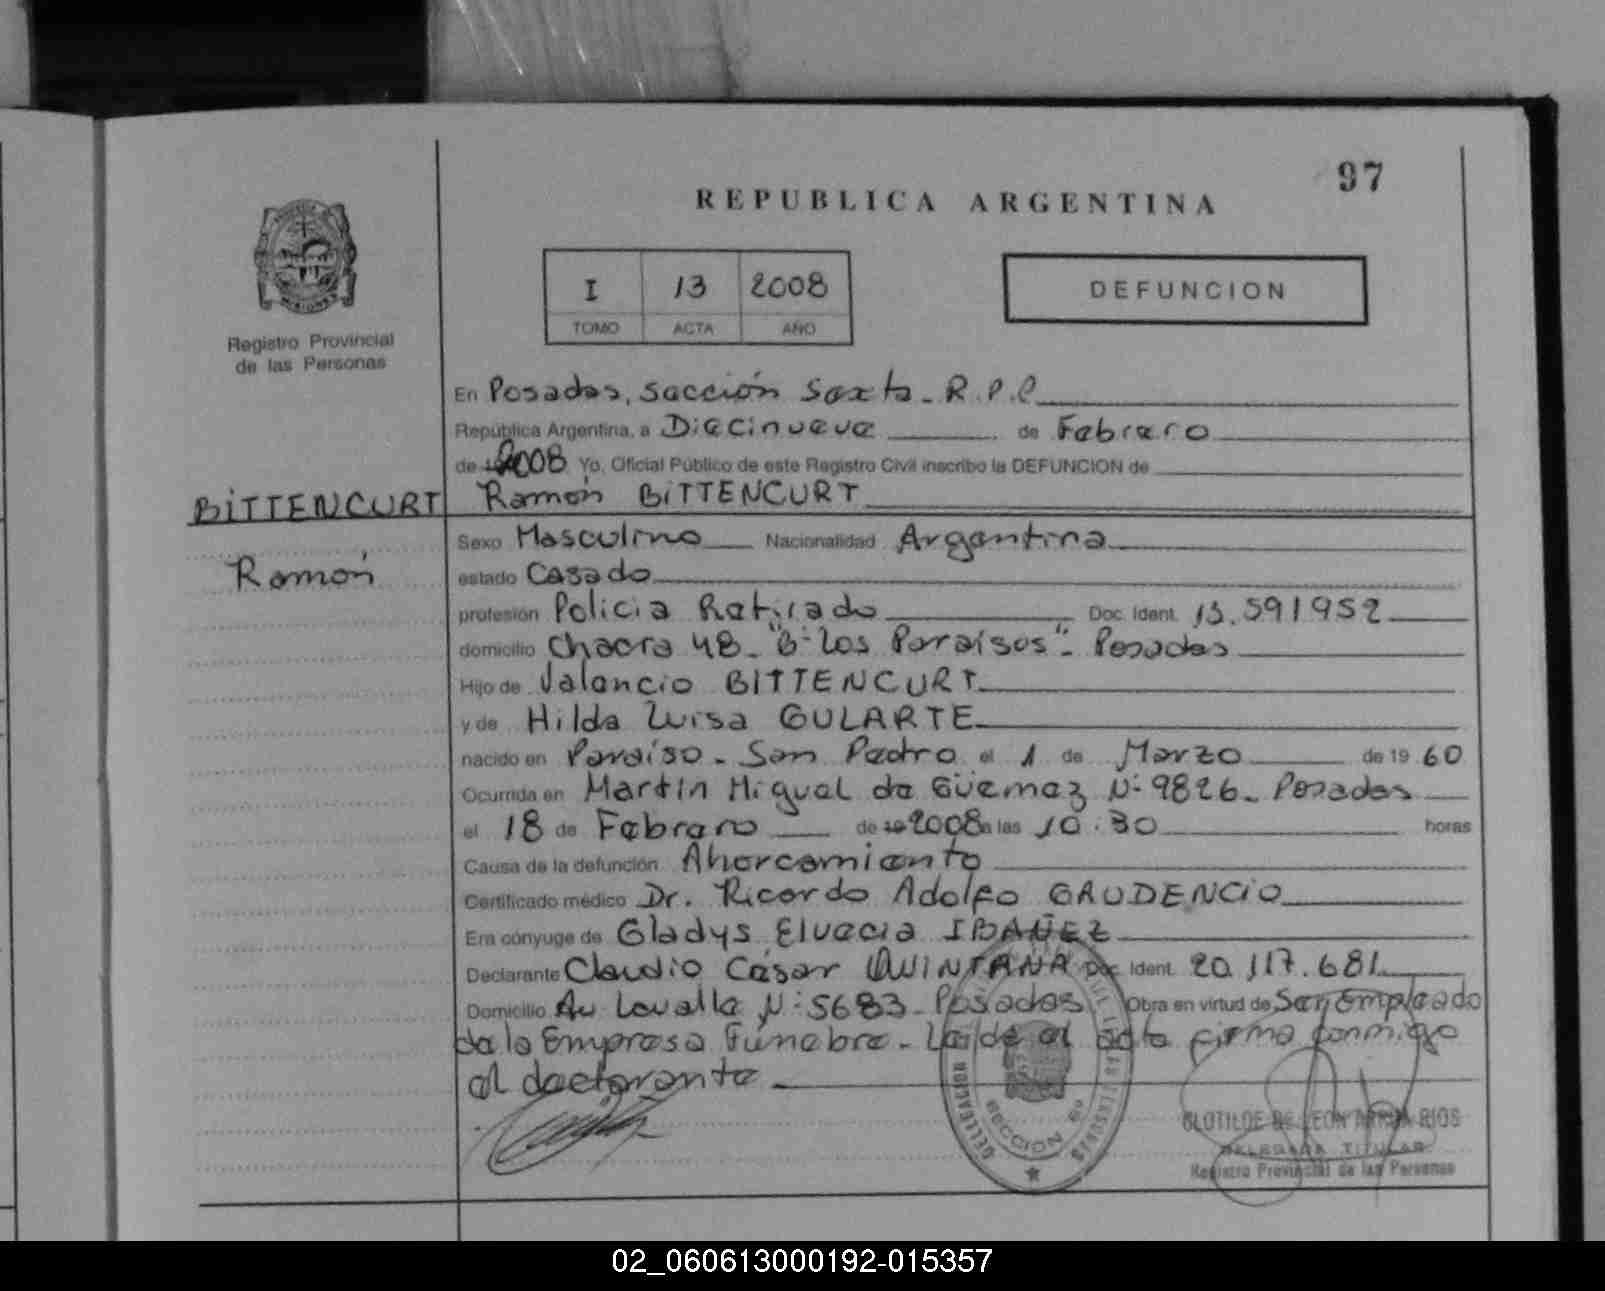 97
REPUBLICA ARGENTINA
I 13 2008
TOMO ACTA AÑO
DEFUNCION
Registro Provincial
de las Personas
En Posadas, Sección Sexta - R.P.P.
República Argentina, a Diecinueve de Febrero
de 2008 Yo, Oficial Público de este Registro Civil inscribo la DEFUNCION de
BITTENCURT Ramón BITTENCURT
Sexo Masculino Nacionalidad Argentina
Ramón
estado Casado
profesión Policia Retirado Doc. Ident. 13.591952
domicilio Chacra 48 - "B- Los Paraísos" - Posadas
Hijo de Valencio BITTENCURT
y de Hilda Luisa GULARTE
nacido en Paraíso - San Pedro el 1 de Marzo de 19 60
Ocurrida en Martín Miguel de Güemez Nº 9826 - Posadas
el 18 de Febrero de 2008 a las 10:30 horas
Causa de la defunción Ahorcamiento
Certificado médico Dr. Ricardo Adolfo GAUDENCIO
Era cónyuge de Gladys Elvecia IBAÑEZ
Declarante Claudio César QUINTANA Doc. Ident. 20.117.681
Domicilio Av. Lavalle Nº 5683 - Posadas Obra en virtud de Ser Empleado
de la Empresa Fúnebre - Leída el acta firma conmigo
el declarante
SECCION 6a
CLOTILDE DE LEON RIOS
DELEGADA TITULAR
Registro Provincial de las Personas
02_060613000192-015357